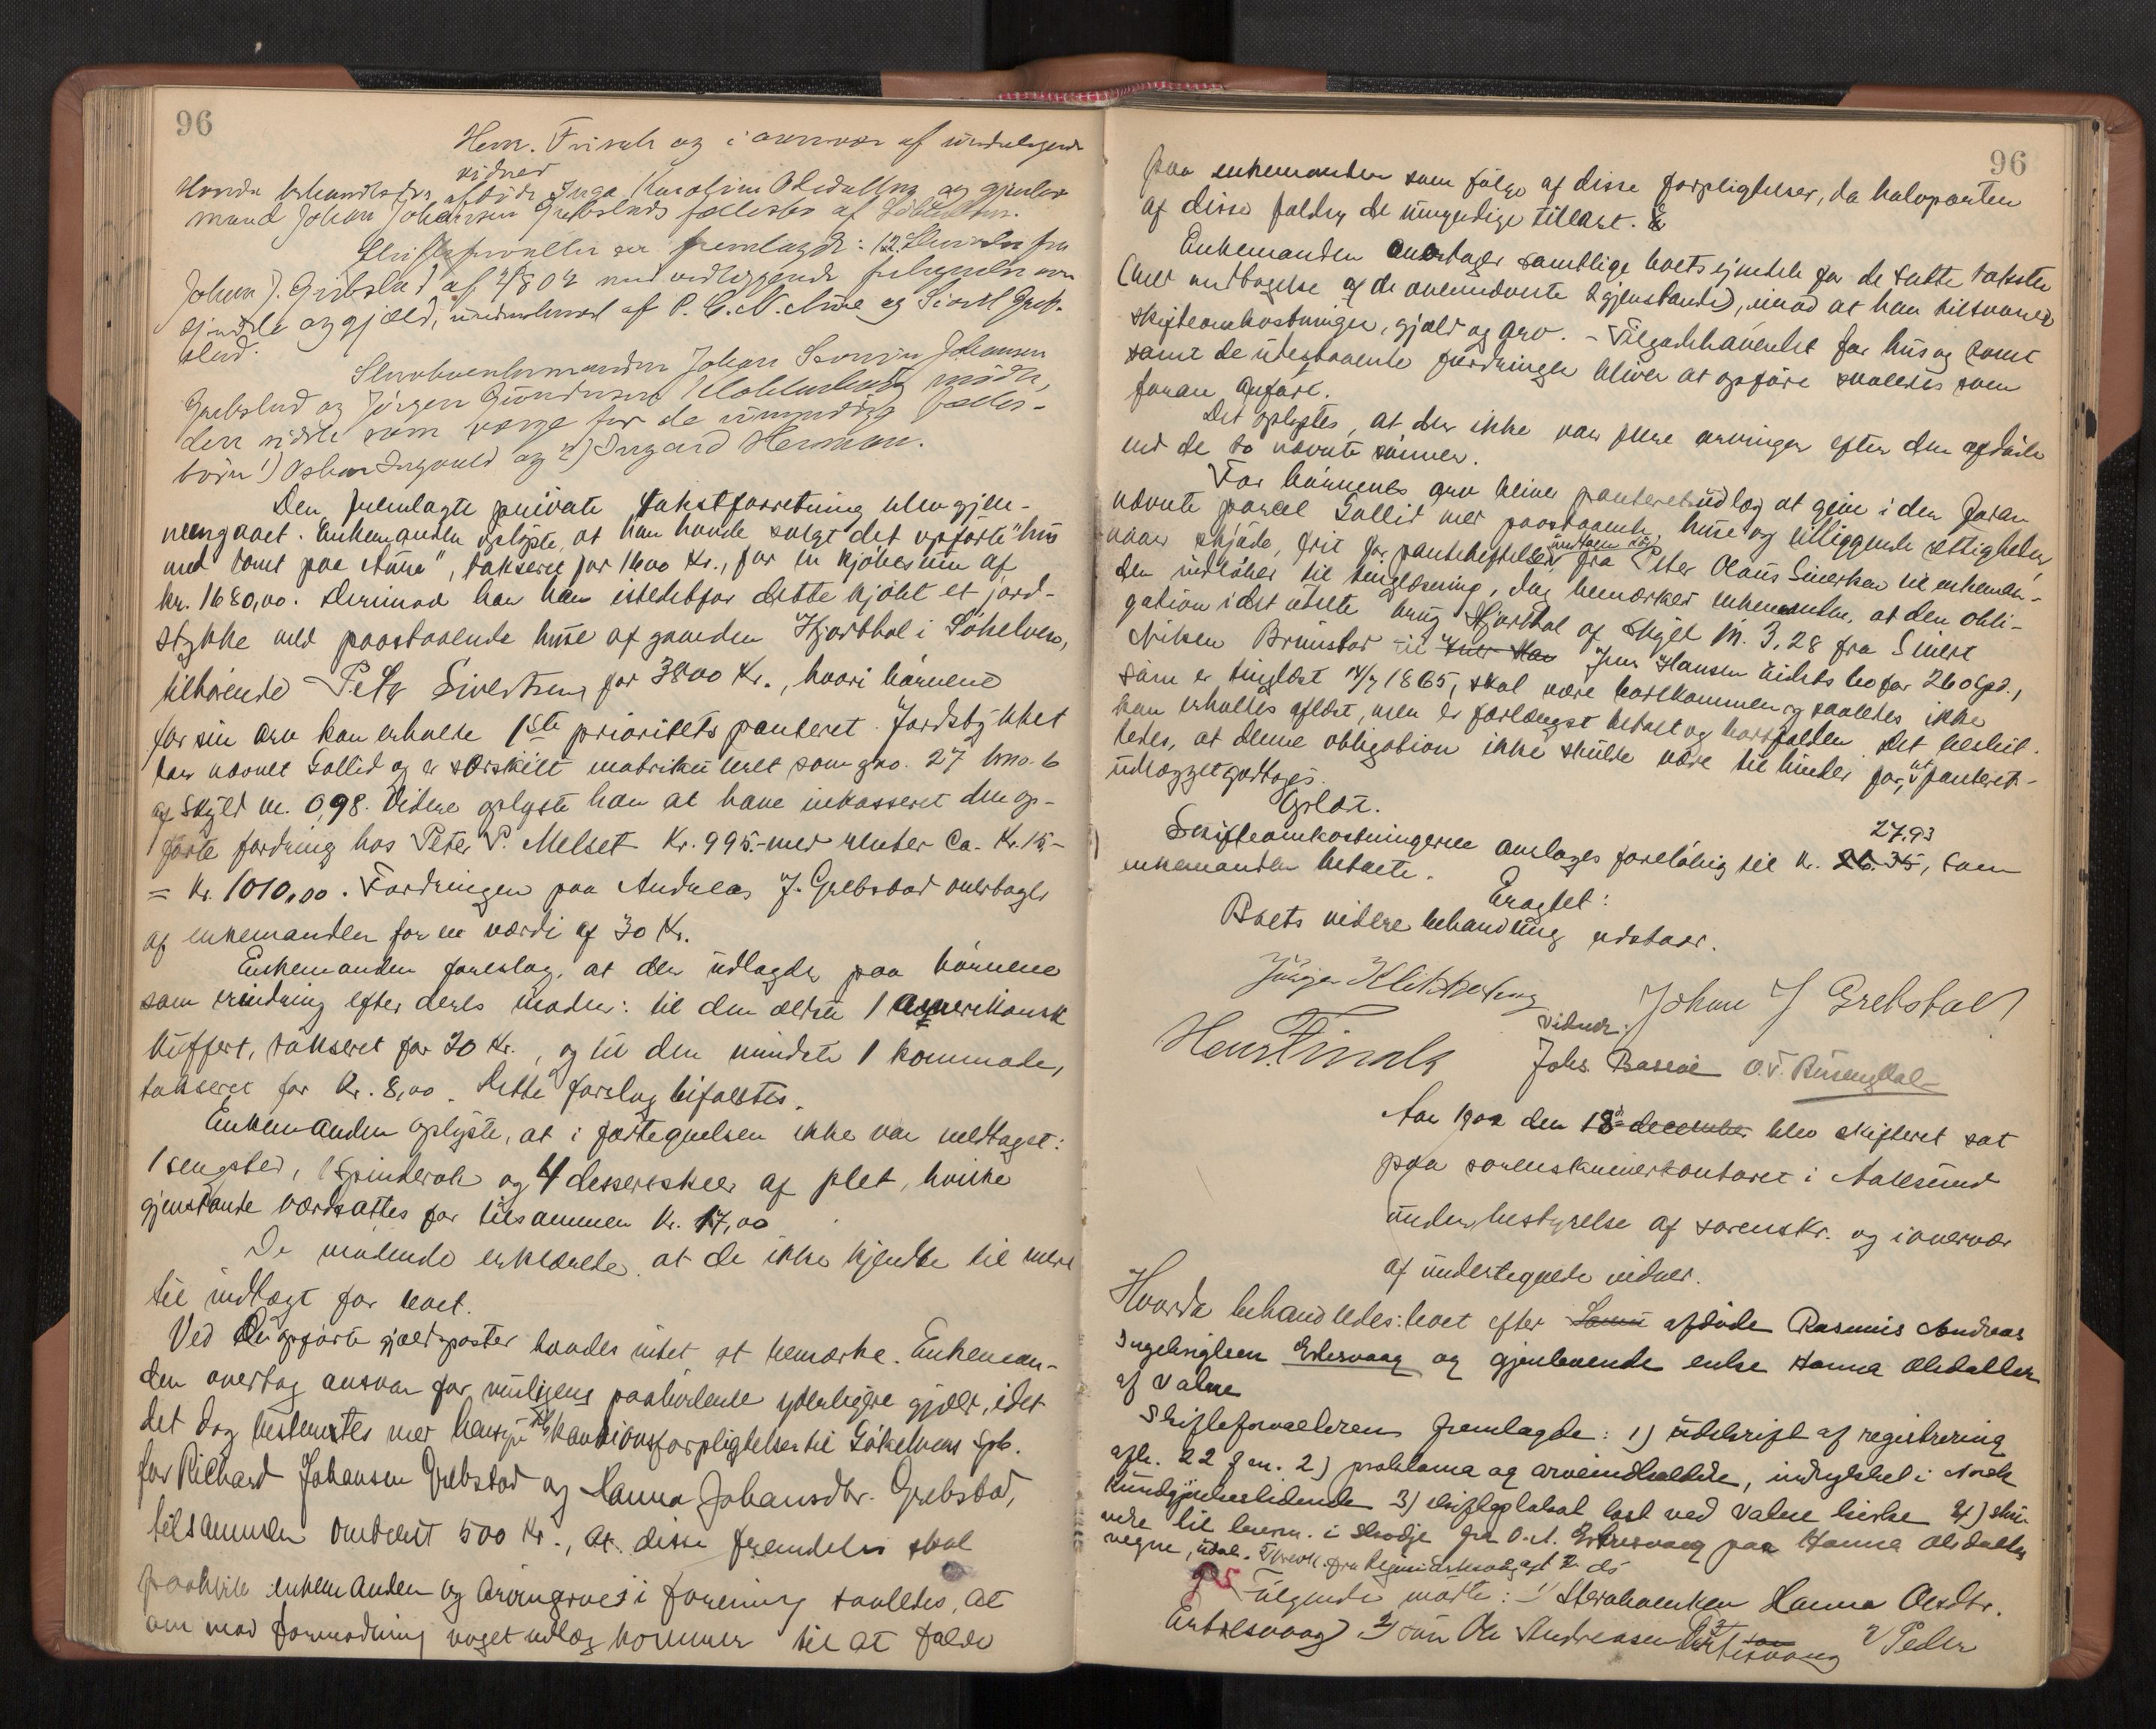 96
Henr. Finsch og i overvær af undertegnede
vidner
Hvorda behandledes afdøde Inga Karoline Olsdatters og gjenlev.
mand Johan Johansen Grebstads fællesbo af Søkelven.
Skifteforvalter fremlagde: 12. Skrivelse fra
Johan J. Grebstad af med vedliggende fortegnelse over
ejendele og gjæld, underskrevet af P. E. N. Aure og Sivert Greb-
stad.
Sterbo enkemanden Johan Severin Johansen
Grebstad og Jørgen Gundersen Klokkerhoug mødte,
den sidste som værge for de umyndige fælles-
børn 1) Oskar Ingvald og 2) Ingard Herman.
Den fremlagte private takstforretning blev gjen-
nemgaaet. Enkemanden oplyste, at han havde solgt det opførte "hus
med tomt paa Aure", takseret for 1600 Kr., for en kjøbesum af
kr. 1680,00. Derimod har han istedetfor dette kjøbt et jord-
stykke med paastaaende huse af gaarden Hjorthol i Søkelven,
tilhørende Peter Sivertsen for 3800 Kr., hvori børnene
for sin arv kan erholde 1ste prioritets panteret. Jordstykket
har navnet Sollid og er særskilt matrikuleret som gno. 27 bno. 6
af Skyld m. 0,98. Videre oplyste han at have inkasseret den op-
førte fordring hos Peter P. Melset Kr. 995.- med renter ca. Kr. 15,-
= Kr. 1010,00. Fordringen paa Andreas J. Grebstad overtages
af enkemanden for en værdi af 30 Kr.
Enkemanden foreslog, at der udlagdes paa børnene
som erindring efter deres moder: til den ældste 1 amerikansk
kuffert, takseret for 20 Kr., og til den mindste 1 kommode,
takseret for Kr. 8,00. Dette forslag bifaldtes.
Enkemanden oplyste, at i fortegnelsen ikke var medtaget:
1 sengsted, 1 spinderok og 4 dessertskeer af plet, hvilke
gjenstande værdsattes for tilsammen Kr. 17,00
De mødende erklærede at de ikke kjendte til mere
til indtægt for boet.
Ved de opførte gjældsposter havdes intet at bemærke. Enkeman-
den overtog ansvar for muligens paahvilende yderligere gjæld, idet
det dog bestemtes med hensyn til kautionsforpligtelser til Søkelvens Spb.
for Richard Johansen Grebstad og Hanna Johansdtr. Grebstad,
tilsammen omtrent 500 Kr., at disse fremdeles skal
paahvile enkemanden og arvingerne i forening saaledes, at
om mod formodning noget udlæg kommer til at falde
96
paa enkemanden som følge af disse forpligtelser, da halvparten
af disse falder de umyndige tillast.
Enkemanden overtager samtlige boets ejendele for de satte takster
(med undtagelse af de ovennævnte 2 gjenstande), imod at han tilsvarer
skifteomkostninger, gjæld og arv. - Tilgodehavendet for hus og tomt
samt de udestaaende fordringer bliver at opføre saaledes som
foran anført.
Det oplystes, at der ikke var flere arvinger efter den afdøde
end de to nævnte sønner.
For børnenes arv bliver panteretsudlæg at give i den foran
nævnte parcel Sollid med paastaaende huse og tilliggende rettigheder,
naar skjøde, frit for pantehæftelser fra Peter Olaus Sivertsen til enkeman-
den indløber til tinglæsning, dog bemærker enkemanden, at den obli-
gation i det udelte brug Hjorthol af Skyld m. 3,28 fra Sivert
Nilsen Brunstad til Jens Hansen Eidets bo for 260 Spd.,
som er tinglæst 14/7 1865, skal være bortkommen og saaledes ikke
kan erholdes aflæst, men er forlængst betalt og bortfalden. Det beslut-
tedes, at denne obligation ikke skulde være til hinder for, at panterets-
udlægget godtages.
Oplæst.
Skifteomkostningerne anslages foreløbig til Kr. 27.93, som
enkemanden betalte.
Eragtet:
Boets videre behandling udstaar.
Jørgen Klokkerhoug
Johan J Grebstad
Henr. Finsch
Vidner:
Johs. Basoie O. V. Rusengdal
Aar 1902 den 18de december blev skifteret sat
paa sorenskriverkontoret i Aalesund
under bestyrelse af sorenskr. og i overvær
af undertegnede vidner.
Hvorda behandledes: boet efter afdøde Rasmus Andreas
Ingebrigtsen Ertesvaag og gjenlevende enke Hanna Olsdatter
af Vatne
Skifteforvalteren fremlagde: 1) udskrift af registrering
afh. 22 2) proklama og arveindkaldelse, indrykket i Norsk
Kundgjørelsestidende 3) skifteplakat læst ved Vatne kirke 4) skri-
velse til lensm. i Skodje fra O. A. Ertesvaag paa Hanna Olsdatters
vegne,
Følgende mødte: 1) Sterboenken Hanna Olsdtr.
Ertesvaag 2) søn Ole Andreas Ertesvaag Peder